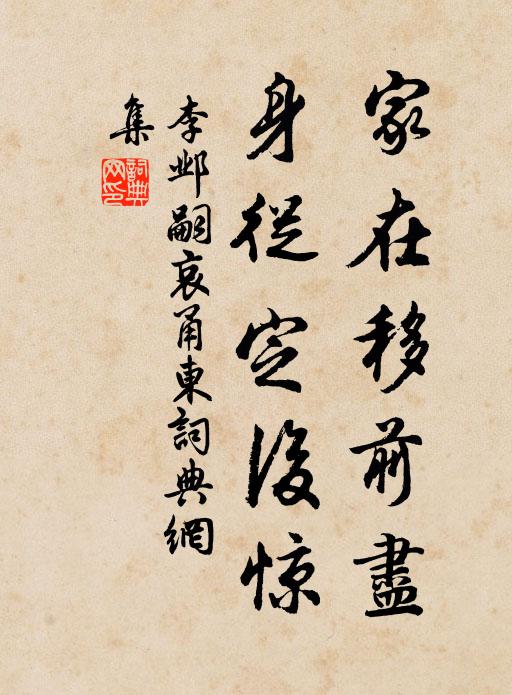 家在移前盡
身從定後惊
李邺嗣哀甬東詞典網
集
詞典
网印